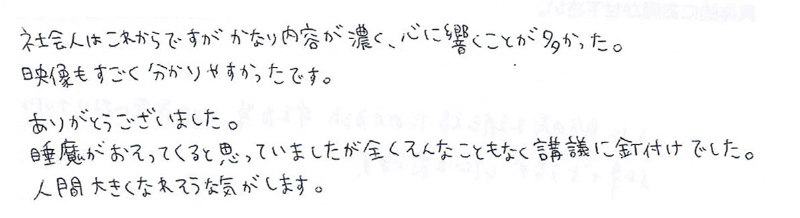 社会人はこれからですが かなり内容が濃く、心に響くことが多かった。
映像もすごく分かりやすかったです。
ありがとうございました。
睡魔がおそってくると思っていましたが全くそんなこともなく講議に釘付けでした。
人間大きくなれそうな気がします。